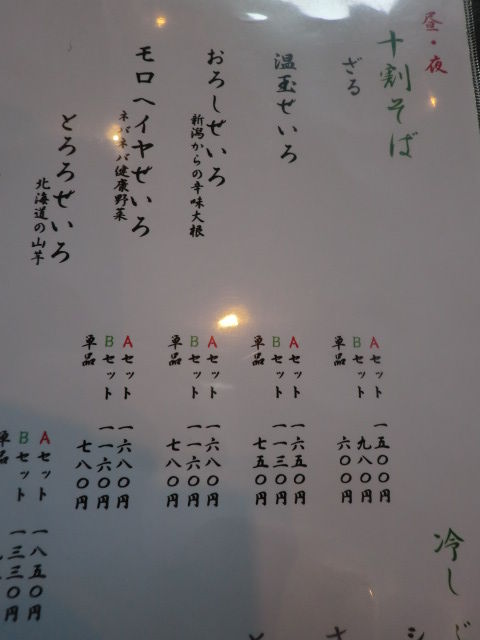 昼・夜
十割そば
ざる
Aセット 一五〇〇円
Bセット 九八〇円
単品 六〇〇円
温玉ぜいろ
Aセット 一六五〇円
Bセット 一一三〇円
単品 七五〇円
おろしぜいろ
新潟からの辛味大根
Aセット 一六八〇円
Bセット 一一六〇円
単品 七八〇円
モロヘイヤぜいろ
ネバネバ健康野菜
Aセット 一六八〇円
Bセット 一一六〇円
単品 七八〇円
とろろぜいろ
北海道の山芋
Aセット 一八五〇円
Bセット 一三三〇円
単品
冷し